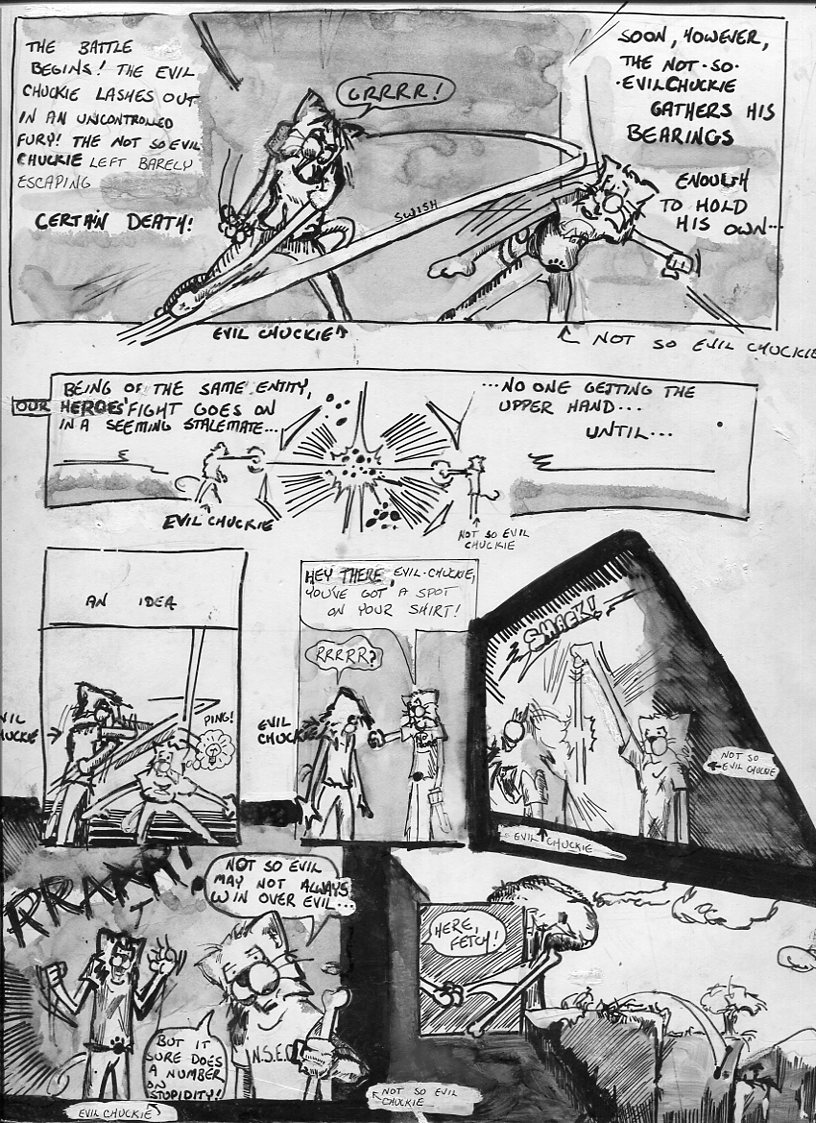 THE BATTLE
BEGINS! THE EVIL
CHUCKIE LASHES OUT
IN AN UNCONTROLLED
FURY! THE NOT SO EVIL
CHUCKIE LEFT BARELY
ESCAPING
CERTAIN DEATH!
GRRRR!
SWISH
SOON, HOWEVER,
THE NOT-SO-
-EVIL CHUCKIE
GATHERS HIS
BEARINGS
ENOUGH
TO HOLD
HIS OWN...
EVIL CHUCKIE
NOT SO EVIL CHUCKIE
BEING OF THE SAME ENTITY,
OUR HEROES' FIGHT GOES ON
IN A SEEMING STALEMATE...
...NO ONE GETTING THE
UPPER HAND...
UNTIL...
EVIL CHUCKIE
NOT SO EVIL
CHUCKIE
AN IDEA
PING!
EVIL
CHUCKIE
HEY THERE, EVIL-CHUCKIE,
YOU'VE GOT A SPOT
ON YOUR SHIRT!
RRRRR?
EVIL
CHUCKIE
SMACK!
NOT SO
EVIL CHUCKIE
EVIL CHUCKIE
NOT SO EVIL
MAY NOT ALWAYS
WIN OVER EVIL...
BUT IT
SURE DOES
A NUMBER
ON
STUPIDITY!
N.S.E.C
EVIL CHUCKIE
HERE,
FETCH!
NOT SO EVIL
CHUCKIE